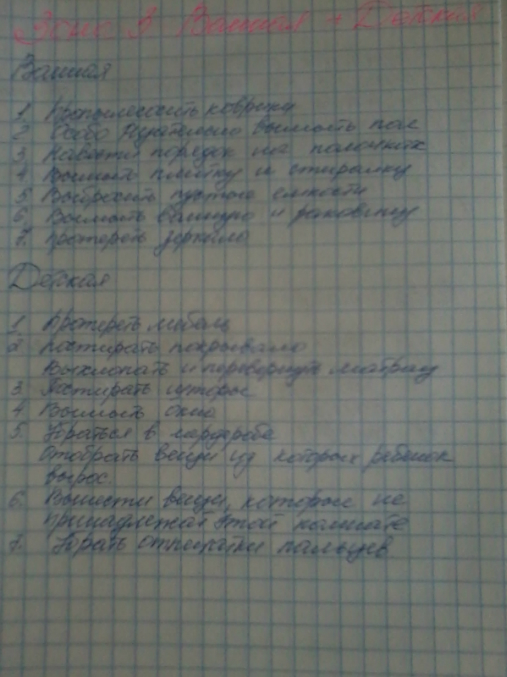 Зона 3 Ванная + Детская
Ванная
1. Пропылесосить коврики
2. Особо тщательно вымыть пол
3. Навести порядок на полочках
4. Вымыть плитку и стиралку
5. Выбросить пустые емкости
6. Вымыть ванную и раковину
7. Протереть зеркало
Детская
1. Протереть мебель
2. Постирать покрывало
Выхлопать и перевернуть матрац
3. Постирать шторы
4. Вымыть окна
5. Убраться в гардеробе
Отобрать вещи из которых ребенок
вырос
6. Вынести вещи, которые не
принадлежат этой комнате
7. Убрать отпечатки пальцев